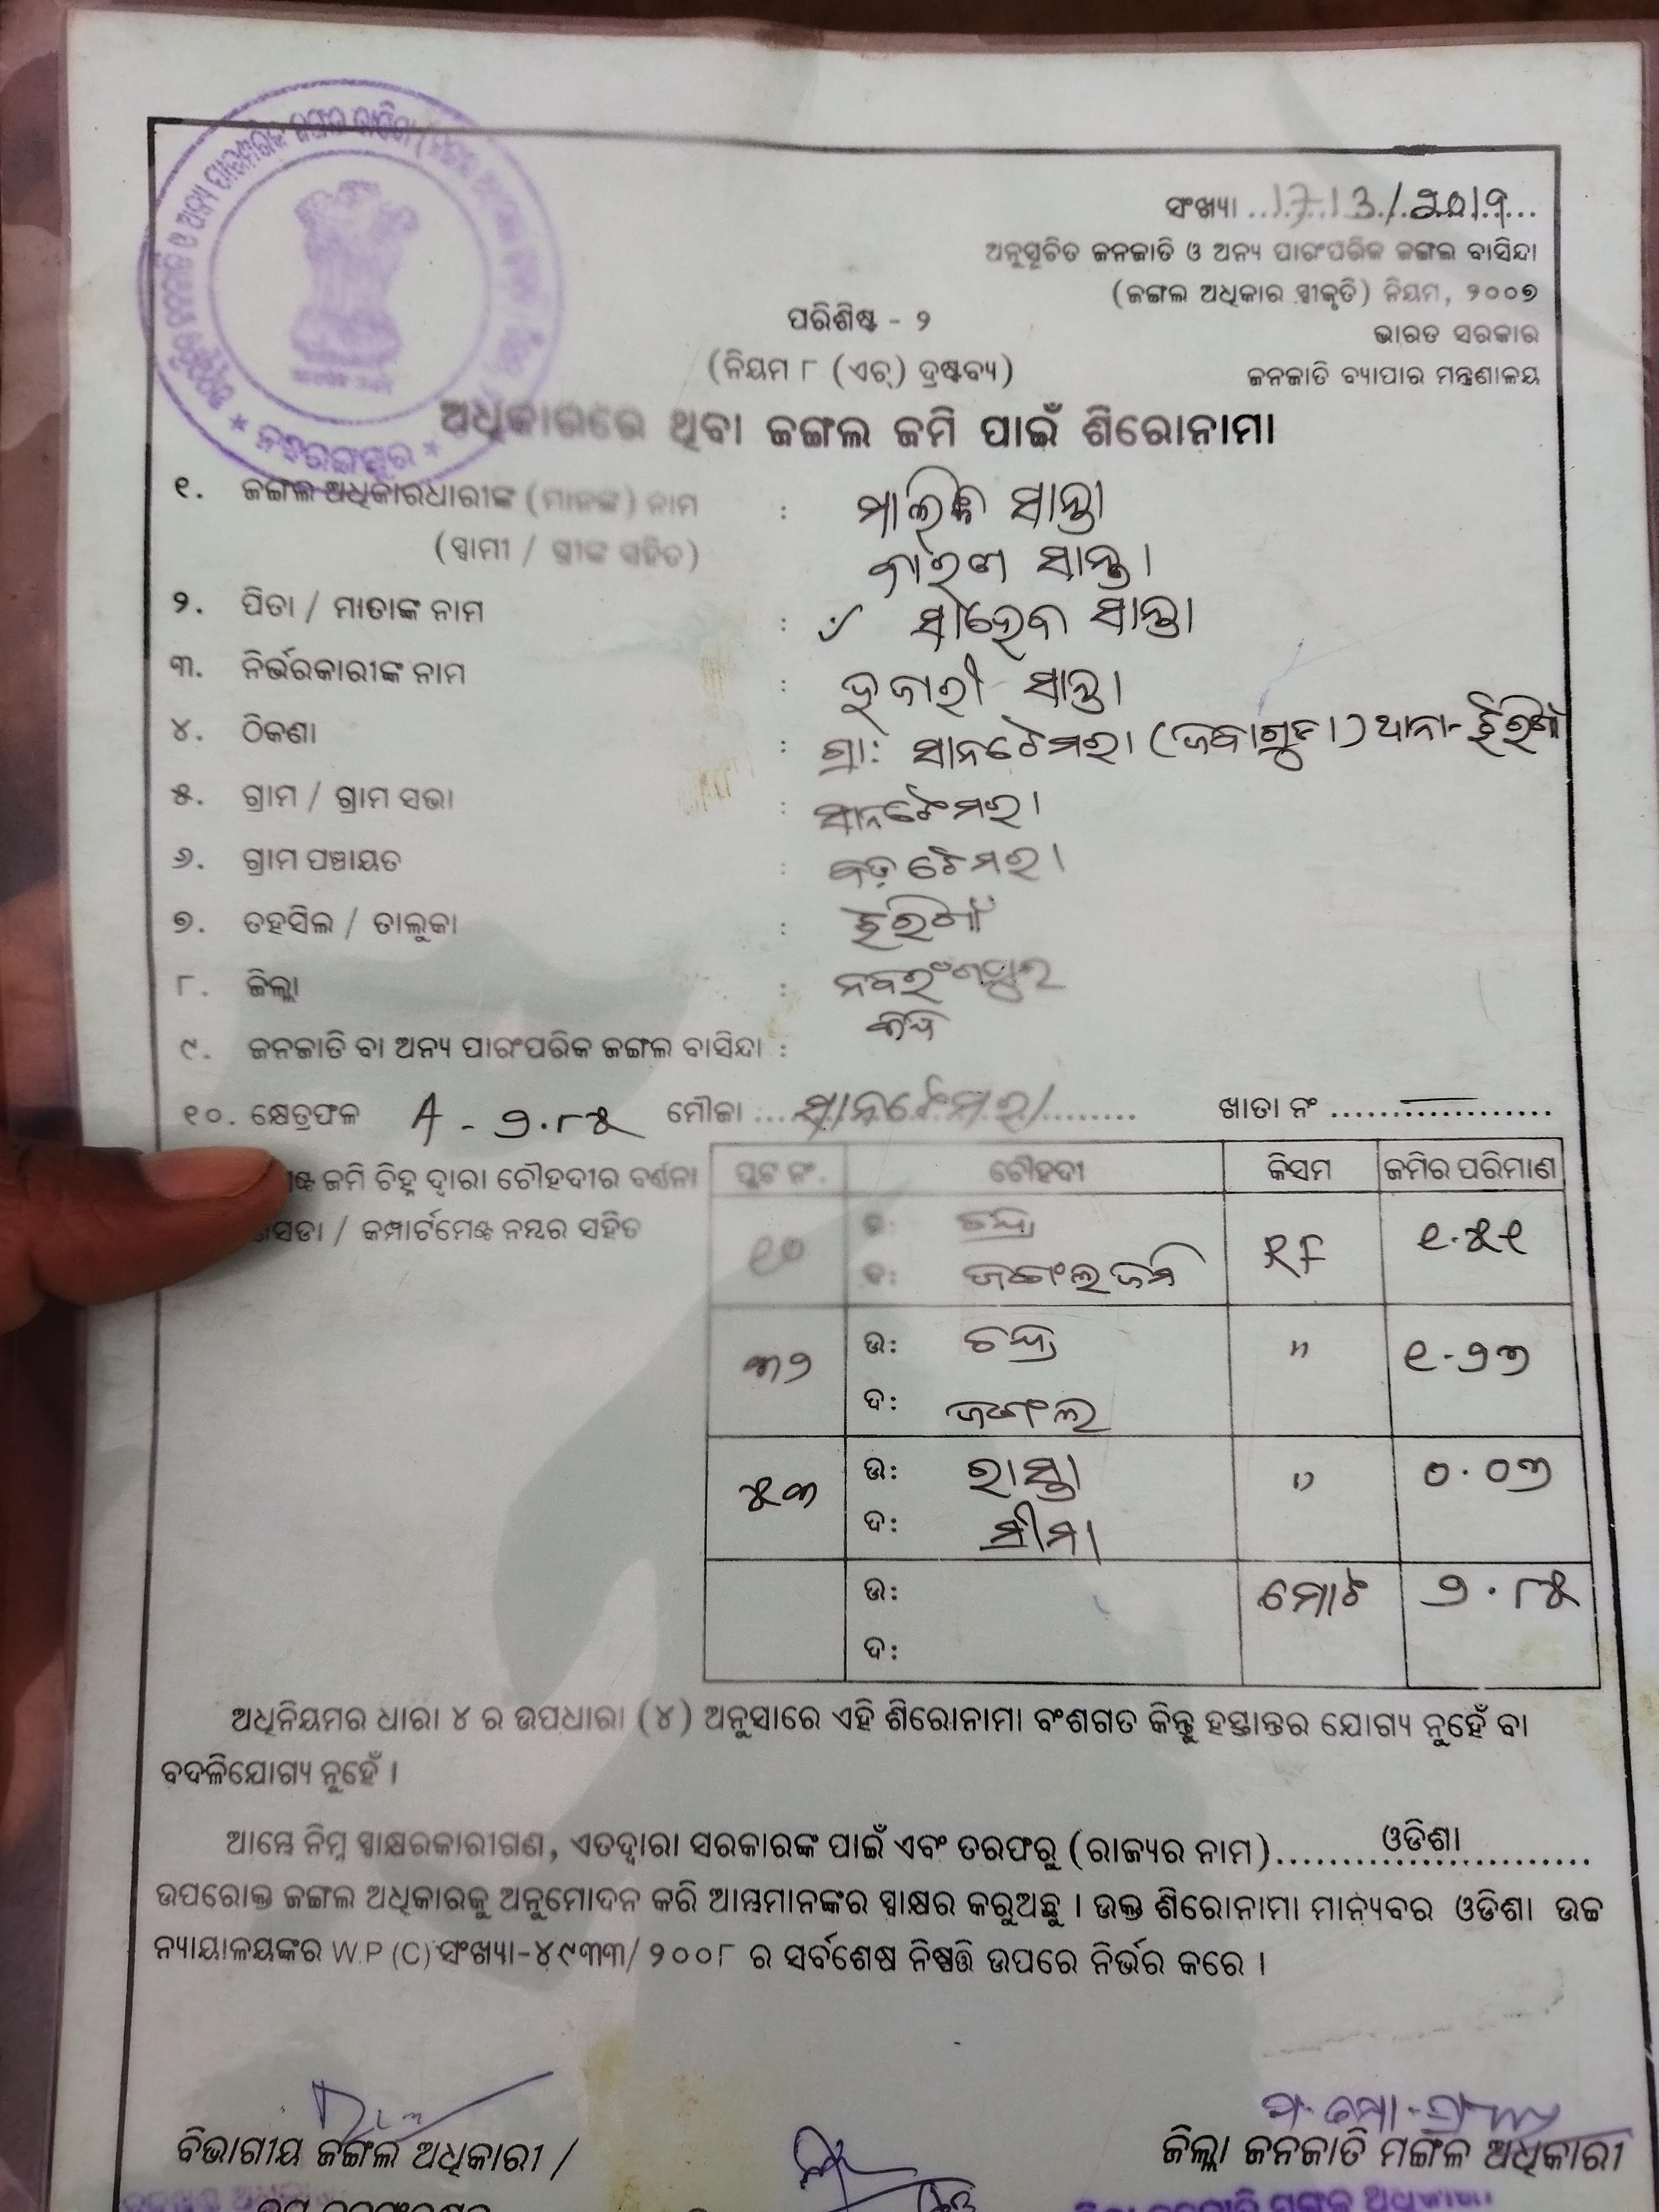 ସଂଖ୍ୟା
ଅନୁସୂଚିତ ଜନଜାତି ଓ ଅନ୍ୟ ପାରଂପରିକ ଜଙ୍ଗଲ ବାସିନ୍ଦା
(ଜଙ୍ଗଲ ଅଧିକାର ସ୍ୱୀକୃତି) ନିୟମ, ୨୦୦୭
ପରିଶିଷ୍ଟ - ୨
ଭାରତ ସରକାର
(ନିୟମ ୮ (ଏଚ୍) ଦ୍ରଷ୍ଟବ୍ୟ)
ଜନଜାତି ବ୍ୟାପାର ମନ୍ତ୍ରଣାଳୟ
ଅଧିକାରରେ ଥିବା ଜଙ୍ଗଲ ଜମି ପାଇଁ ଶିରୋନାମା
୧. ଜଙ୍ଗଲ ଅଧିକାରଧାରୀଙ୍କ (ମାନଙ୍କ) ନାମ : ସାନ୍ତା
(ସ୍ୱାମୀ / ସ୍ତ୍ରୀଙ୍କ ସହିତ) ସାନ୍ତା
୨. ପିତା / ମାତାଙ୍କ ନାମ : ସାନ୍ତା
୩. ନିର୍ଭରକାରୀଙ୍କ ନାମ : ସାନ୍ତା
୪. ଠିକଣା : ଗ୍ରା: ସାନଟେମରା ଥାନା-
୫. ଗ୍ରାମ / ଗ୍ରାମ ସଭା : ସାନଟେମରା
୬. ଗ୍ରାମ ପଞ୍ଚାୟତ : ବଡ଼ଟେମରା
୭. ତହସିଲ / ତାଲୁକା : ଝରିଗାଁ
୮. ଜିଲ୍ଲା : ନବରଂଗପୁର
୯. ଜନଜାତି ବା ଅନ୍ୟ ପାରଂପରିକ ଜଙ୍ଗଲ ବାସିନ୍ଦା :
୧୦. କ୍ଷେତ୍ରଫଳ A - ୨.୮୫ ମୌଜା ... ସାନଟେମରା ........ ଖାତା ନଂ ..................
ଜମି ଚିହ୍ନ ଦ୍ୱାରା ଚୌହଦୀର ବର୍ଣନା
/ କମ୍ପାର୍ଟମେଣ୍ଟ ନମ୍ବର ସହିତ
ପ୍ଲଟ ନଂ. ଚୌହଦୀ କିସମ ଜମିର ପରିମାଣ
୧୦ ଉ: ଚନ୍ଦ୍ର RF ୧.୫୧
ଦ: ଜଙ୍ଗଲ ଜମି
୩୨ ଉ: ଚନ୍ଦ୍ର " ୧.୨୭
ଦ: ଜଙ୍ଗଲ
୫୩ ଉ: ରାସ୍ତା " ୦.୦୭
ଦ: ସୀମା
ଉ: ମୋଟ ୨.୮୫
ଦ:
ଅଧିନିୟମର ଧାରା ୪ ର ଉପଧାରା (୪) ଅନୁସାରେ ଏହି ଶିରୋନାମା ବଂଶଗତ କିନ୍ତୁ ହସ୍ତାନ୍ତର ଯୋଗ୍ୟ ନୁହେଁ ବା
ବଦଳିଯୋଗ୍ୟ ନୁହେଁ ।
ଆମ୍ଭେ ନିମ୍ନ ସ୍ୱାକ୍ଷରକାରୀଗଣ, ଏତଦ୍ଦ୍ୱାରା ସରକାରଙ୍କ ପାଇଁ ଏବଂ ତରଫରୁ (ରାଜ୍ୟର ନାମ)........ଓଡିଶା........
ଉପରୋକ୍ତ ଜଙ୍ଗଲ ଅଧିକାରକୁ ଅନୁମୋଦନ କରି ଆମ୍ଭମାନଙ୍କର ସ୍ୱାକ୍ଷର କରୁଅଛୁ । ଉକ୍ତ ଶିରୋନାମା ମାନ୍ୟବର ଓଡିଶା ଉଚ୍ଚ
ନ୍ୟାୟାଳୟଙ୍କର W.P (C) ସଂଖ୍ୟା-୪୯୩୩/ ୨୦୦୮ ର ସର୍ବଶେଷ ନିଷ୍ପତ୍ତି ଉପରେ ନିର୍ଭର କରେ ।
ବିଭାଗୀୟ ଜଙ୍ଗଲ ଅଧିକାରୀ /
ଜିଲ୍ଲା ଜନଜାତି ମଙ୍ଗଳ ଅଧିକାରୀ